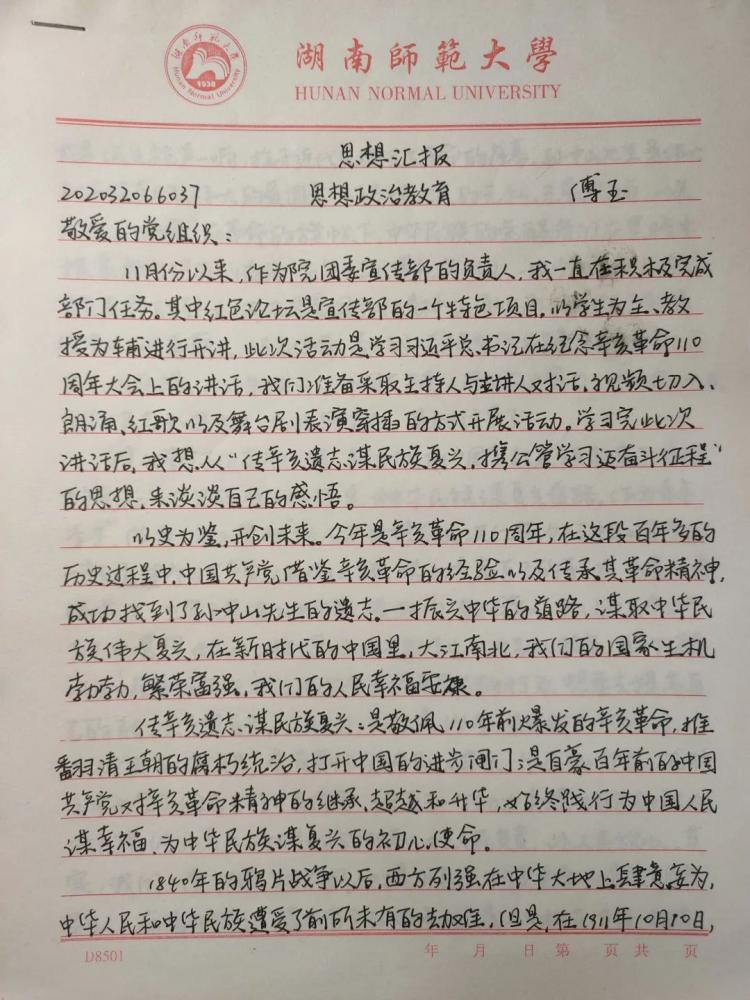 湖南师范大学
Hunan Normal University
1938
湖南師範大學
HUNAN NORMAL UNIVERSITY
思想汇报
202032066037 思想政治教育 傅玉
敬爱的党组织：
11月份以来，作为院团委宣传部的负责人，我一直在积极完成
部门任务。其中红色论坛是宣传部的一个特色项目，以学生为主、教
授为辅进行开讲，此次活动是学习习近平总书记在纪念辛亥革命110
周年大会上的讲话，我们准备采取主持人与主讲人对话，视频切入、
朗诵、红歌以及舞台剧表演穿插的方式开展活动。学习完此次
讲话后，我想从“传辛亥遗志谋民族复兴，携公管学习迈奋斗征程”
的思想，来谈谈自己的感悟。
以史为鉴，开创未来。今年是辛亥革命110周年，在这段百年多的
历史过程中，中国共产党借鉴辛亥革命的经验以及传承其革命精神，
成功找到了孙中山先生的遗志。一振兴中华的道路，谋取中华民
族伟大复兴，在新时代的中国里，大江南北，我们的国家生机
勃勃，繁荣富强，我们的人民幸福安康。
传辛亥遗志、谋民族复兴：是敬佩110年前爆发的辛亥革命，推
翻清王朝的腐朽统治，打开中国的进步闸门；是自豪百年前的中国
共产党对辛亥革命精神的继承、超越和升华，始终践行为中国人民
谋幸福、为中华民族谋复兴的初心使命。
1840年的鸦片战争以后，西方列强在中华大地上肆意妄为，
中华人民和中华民族遭受了前所未有的劫难，但是，在1911年10月10日，
D8501 年 月 日 第 页 共 页